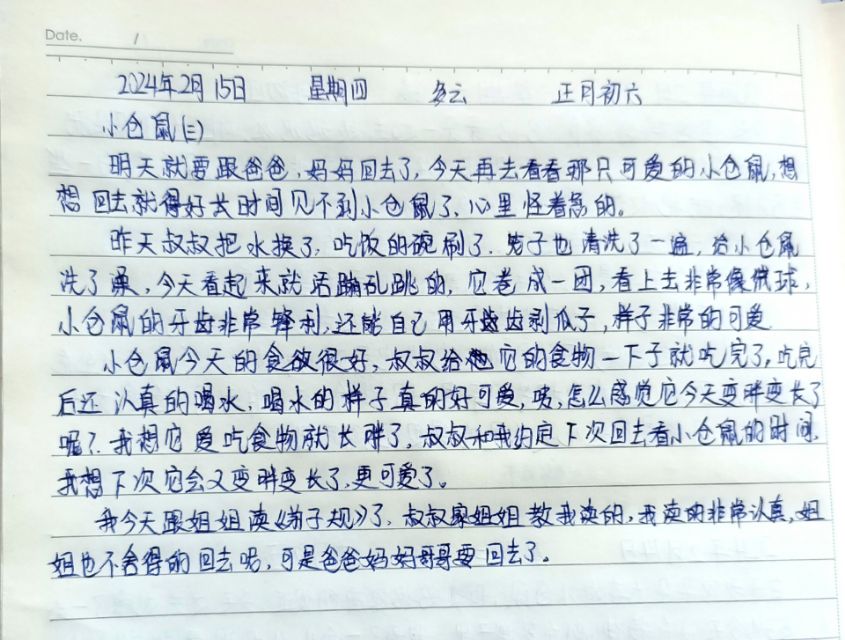 Date. /
2024年2月15日 星期四 多云 正月初六
小仓鼠(三)
明天就要跟爸爸,妈妈回去了,今天再去看看那只可爱的小仓鼠,想
想回去就得好长时间见不到小仓鼠了,心里怪着急的。
昨天叔叔把水换了,吃饭的碗刷了,笼子也清洗了一遍,给小仓鼠
洗了澡,今天看起来就活蹦乱跳的,它卷成一团,看上去非常像绒球,
小仓鼠的牙齿非常锋利,还能自己用牙齿剥瓜子,样子非常的可爱
小仓鼠今天的食欲很好,叔叔给它的食物一下子就吃完了,吃完
后还认真的喝水,喝水的样子真的好可爱,咦,怎么感觉它今天变胖变长了
呢?我想它爱吃食物就长胖了,叔叔和我约定下次回去看小仓鼠的时间,
我想下次它会又变胖变长了,更可爱了。
我今天跟姐姐读《弟子规》了,叔叔家姐姐教我读的,我读的非常认真,姐
姐也不舍得的回去呢,可是爸爸妈妈哥哥要回去了。